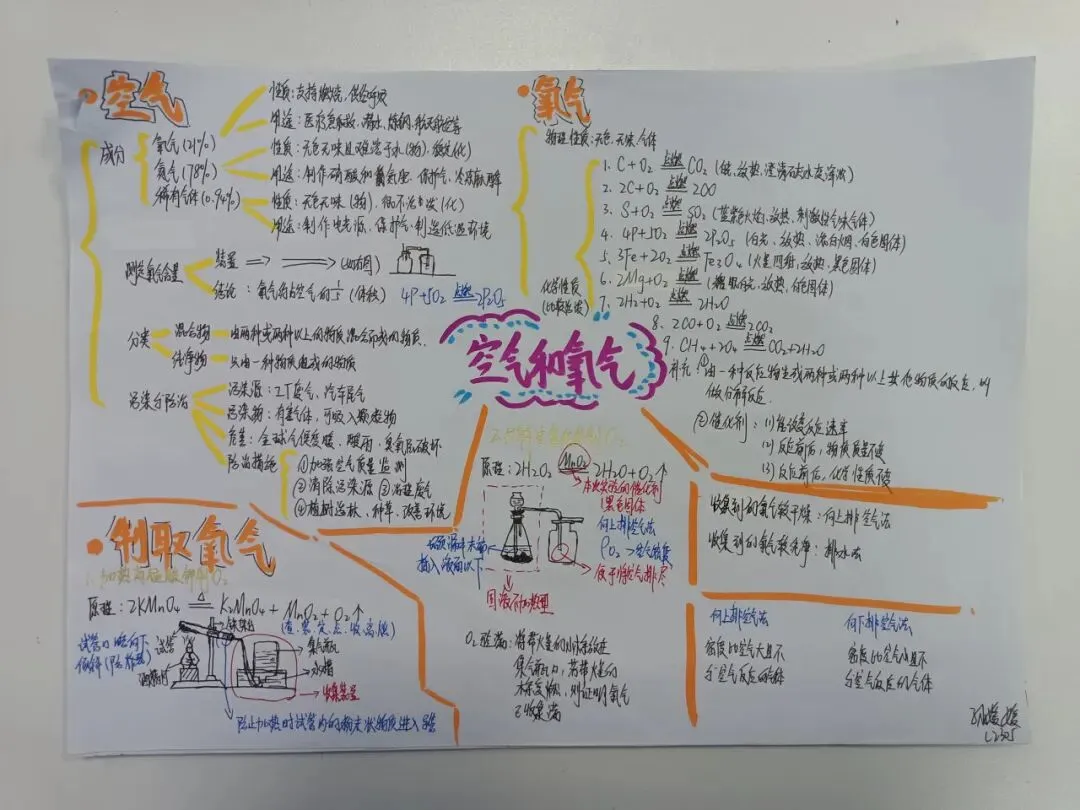 空气
成分
氧气(21%)
性质:支持燃烧,供给呼吸
用途:医疗急救、潜水、炼钢、航天航空等
氮气(78%)
性质:无色无味且难溶于水(物)、
用途:制作硝酸和氮氧肥、保护气、冷冻麻醉
稀有气体(0.94%)
性质:无色无味(物)、
用途:制作电光源、保护气、制造低温环境
测定氧气含量
装置 (如右图)
结论:氧气约占空气的1/5(体积)
4P+5O₂ 点燃 2P₂O₅
分类
混合物 由两种或两种以上的物质混合而成的物质.
纯净物 只由一种物质组成的物质
污染与防治
污染源:工厂废气、汽车尾气
污染物:有害气体,可吸入颗粒物
危害:全球气候变暖、酸雨、臭氧层破坏
防治措施
①加强空气质量监测
②消除污染源 ③治理废气
④植树造林、种草、改善环境
氧气
物理性质:无色、无味、气体
化学性质
(比较活泼)
1. C+O₂ 点燃 CO₂ (放热、澄清石灰水变浑浊)
2. 2C+O₂ 点燃 2CO
3. S+O₂ 点燃 SO₂ (蓝紫色火焰、放热、刺激性气味气体)
4. 4P+5O₂ 点燃 2P₂O₅ (白光、放热、浓白烟、白色固体)
5. 3Fe+2O₂ 点燃 Fe₃O₄ (火星四射、放热、黑色固体)
6. 2Mg+O₂ 点燃 (耀眼白光、放热、白色固体)
7. 2H₂+O₂ 点燃 2H₂O
8. 2CO+O₂ 点燃 2CO₂
9. CH₄+2O₄ 点燃 CO₂+2H₂O
补充:①由一种反应物生成两种或两种以上其他物质的反应,叫
做分解反应.
②催化剂:(1)能改变反应速率
(2)反应前后,物质质量不变
(3)反应前后,化学性质不变
空气和氧气
制取氧气
1.加热高锰酸钾制O₂
原理:2KMnO₄ △ K₂MnO₄+MnO₂+O₂↑
查、装、定、点、收、离、熄
试管口略向下
倾斜(防炸裂)
试管
酒精灯
铁架台
集气瓶
水槽
收集装置
防止加热时试管内的粉末状物质进入导管
原理:2H₂O₂ MnO₂ 2H₂O+O₂↑
本次实验的催化剂
(黑色固体
向上排空气法
长颈漏斗末端
插入液面以下
固液不加热型
O₂验满:将带火星的小木条放在
集气瓶口,若带火星的
木条复燃,则证明氧气
已收集满
收集到的氧气较干燥:向上排空气法
收集到的氧气较纯净:排水法
向上排空气法
密度比空气大且不
与空气反应的气体
向下排空气法
密度比空气小且不
与空气反应的气体
L2305